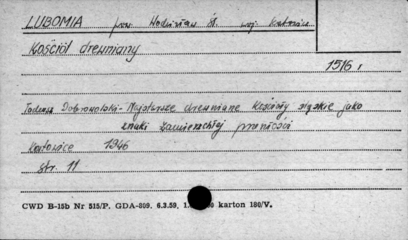 LUBOMIA pow. Wodzisław Śl. woj. Katowice
Kościół drewniany
1516 r
Tadeusz Dobrowolski - Najstarsze drewniane Kościoły śląskie jako
znaki zamierzchłej przeszłości
Katowice 1946
str. 11
CWD B-15b Nr 515/P. GDA-809. 6.3.59, karton 180/V.